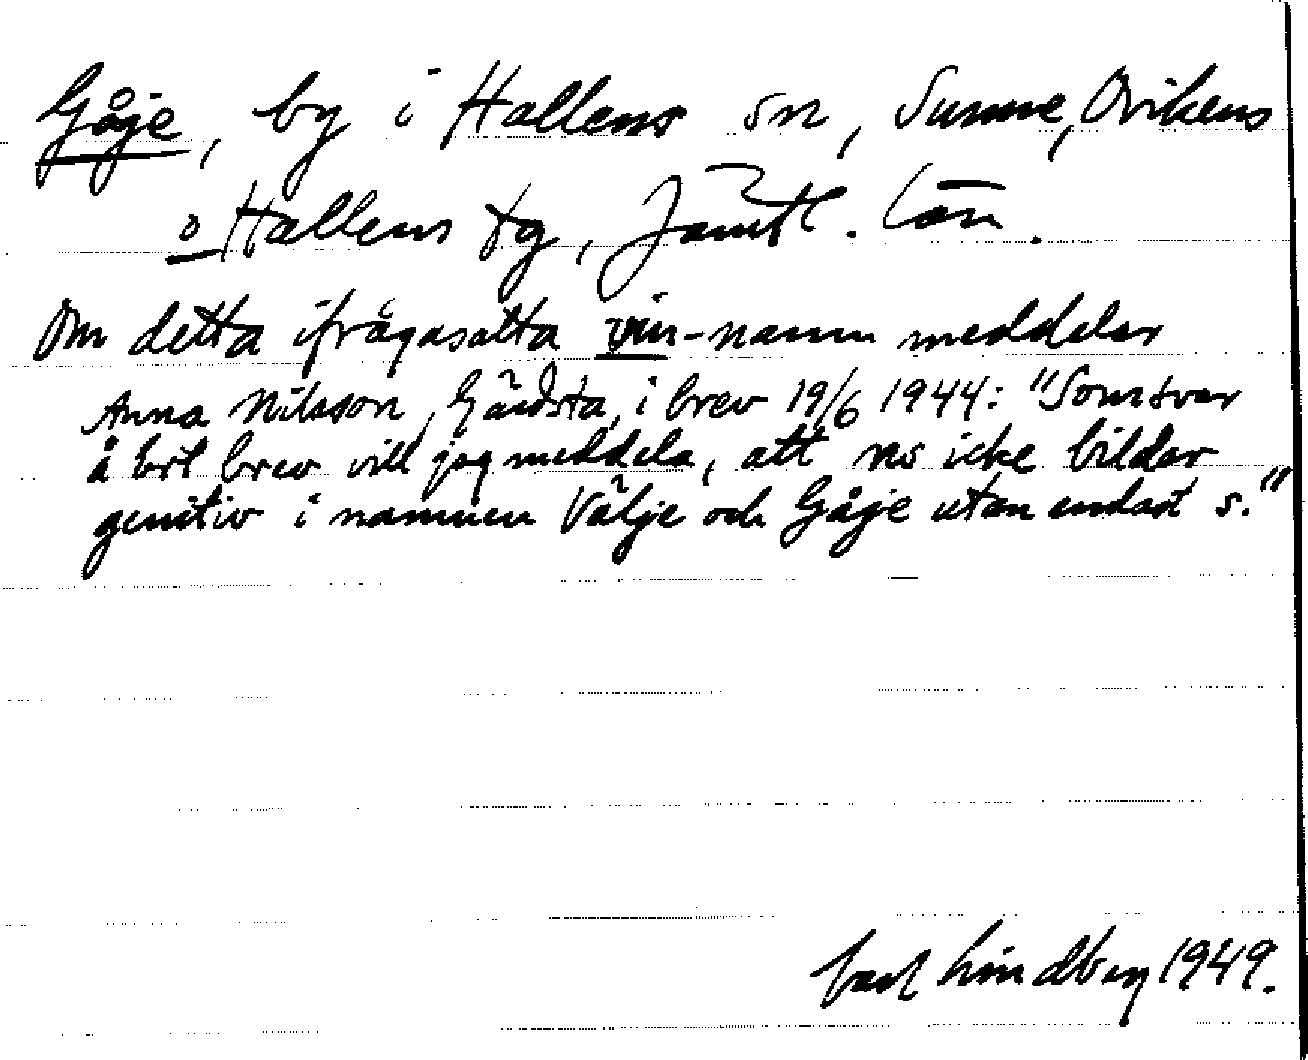 Gåje, by i Hallens sn, Sunne, Ovikens
o Hallens tg, Jämtl. län.
Om detta ifrågasatta vin-namn meddelar
Anna Nilsson, Gärdsta, i brev 19/6 1944: "Som svar
å brt brev vill jag meddela, att ns icke bildar
genitiv i namnen Välje och Gåje utan endast s."
Carl Lindberg 1949.